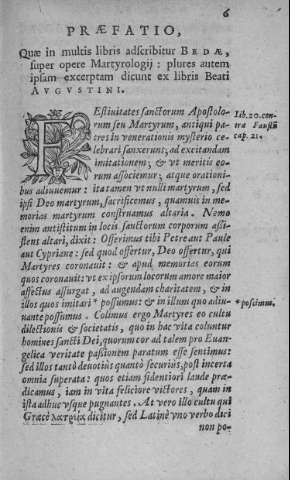 6
PRÆFATIO,
Quæ in multis libris adscribitur BEDÆ,
super opere Martyrologij : plures autem
ipsam excerptam dicunt ex libris Beati
AVGVSTINI.
FEstiuitates sanctorum Apostolo-
rum seu Martyrum, antiqui pa-
tres in venerationis mysterio ce-
lebrari sanxerunt; ad excitandam
imitationem; & vt meritis eo-
rum associemur; atque orationi-
bus adiuuemur : ita tamen vt nulli martyrum, sed
ipsi Deo martyrum, sacrificemus, quamuis in me-
morias martyrum construamus altaria. Nemo
enim antistitum in locis sanctorum corporum assi-
stens altari, dixit : Offerimus tibi Petre aut Paule
aut Cypriane : sed quod offertur, Deo offertur, qui
Martyres coronauit : & apud memorias eorum
quos coronauit: vt ex ipsorum locorum amore maior
affectus assurgat, ad augendam charitatem, & in
illos quos imitari * possumus: & in illum quo adiu-
uante possumus. Colimus ergo Martyres eo cultu
dilectionis & societatis, quo in hac vita coluntur
homines sancti Dei, quorum cor ad talem pro Euan-
gelica veritate passionem paratum esse sentimus:
sed illos tantò deuotiùs quantò securiùs, post incerta
omnia superata: quos etiam fidentiori laude præ-
dicamus, iam in vita feliciore victores, quam in
ista adhuc vsque pugnantes. At vero illo cultu qui
Græcè λατρεία dicitur, sed Latinè vno verbo dici
non po-
Lib. 20. con-
tra Faustū
cap. 21.
*possimus,